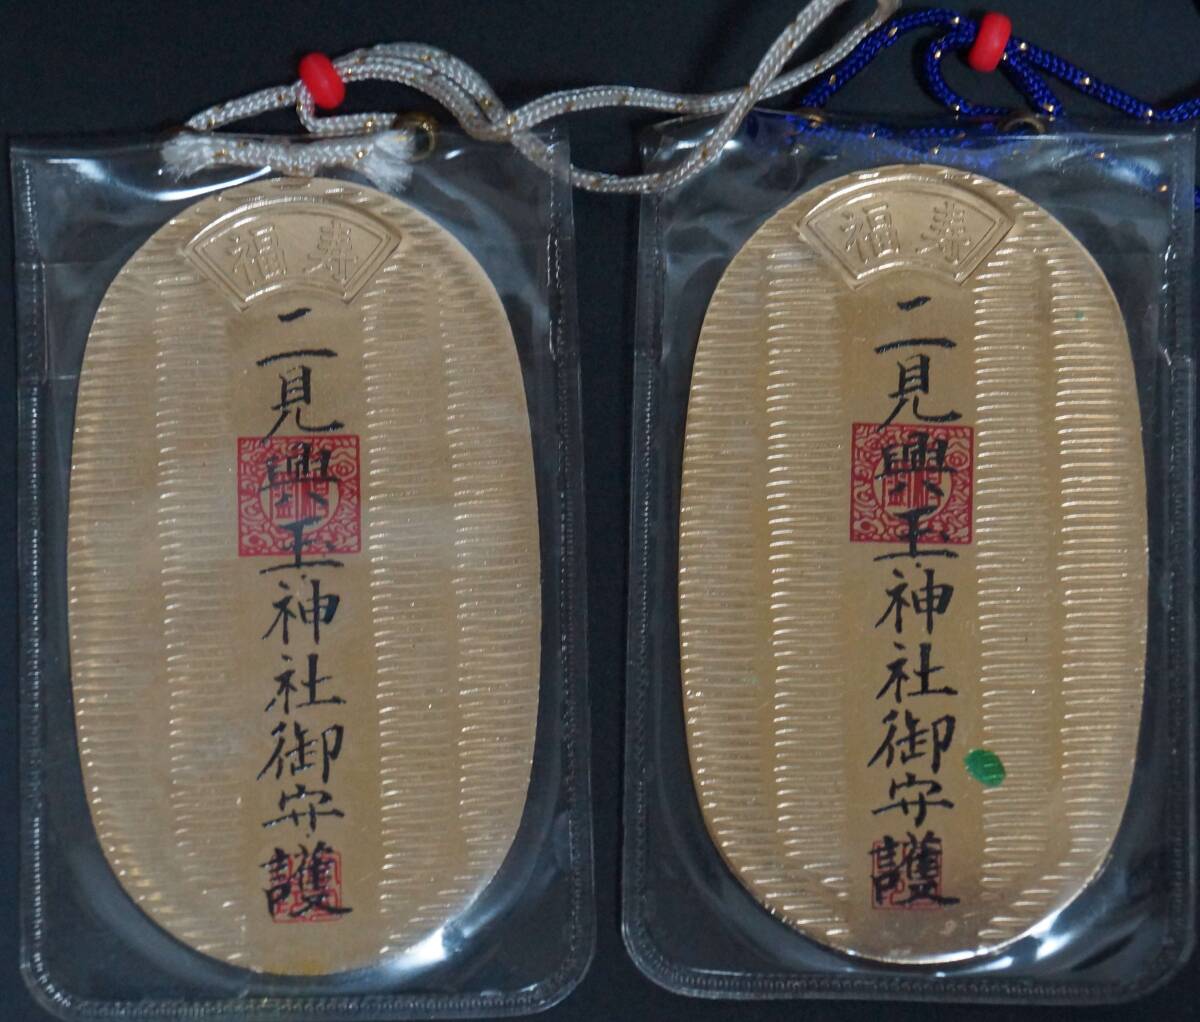 福寿
二見興玉神社御守護
福寿
二見興玉神社御守護